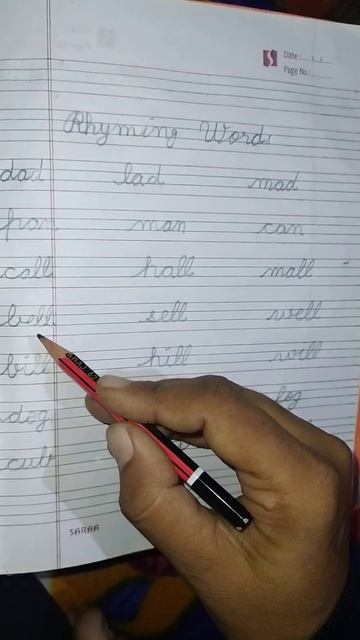 Date :
Page No :
Rhyming Words
dad lad mad
pan man can
call hall mall
bell sell well
bill hill will
dog fog
cub
SARAA